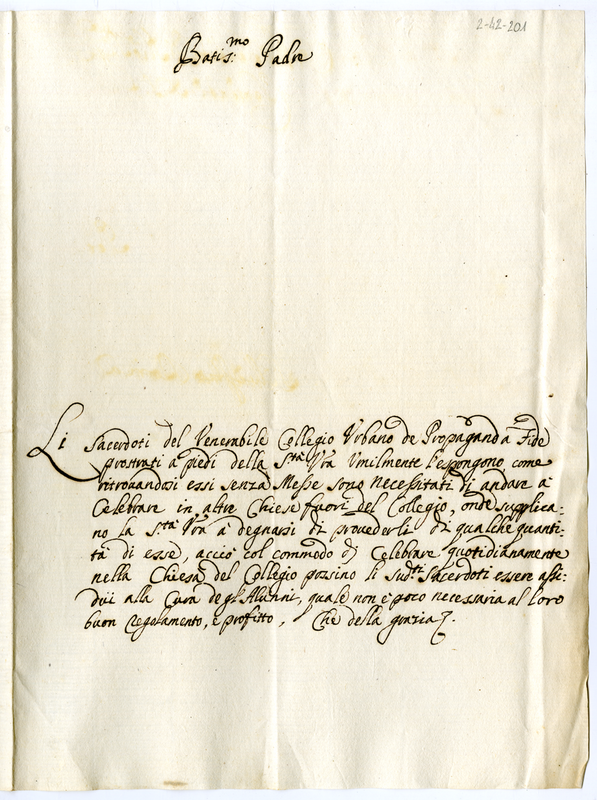 2-42-201
Batis:mo Padre
Li Sacerdoti del Venerabile Collegio Urbano de Propaganda Fide
prostrati a piedi della S.tà Vra Umilmente l'espongono, come
ritrovandosi essi senza Messe sono necessitati di andare à
Celebrare in altre Chiese fuori del Collegio, onde supplica-
no la S.tà Vra à degnarsi di provederli di qualche quanti-
tà di esse, acciò col commodo di Celebrare quotidianamente
nella Chiesa del Collegio possino li Sud.ti Sacerdoti essere assi-
dui alla Cura degl'Alunni, quale non è poco necessaria al loro
buon regolamento, e profitto, Che della grazia